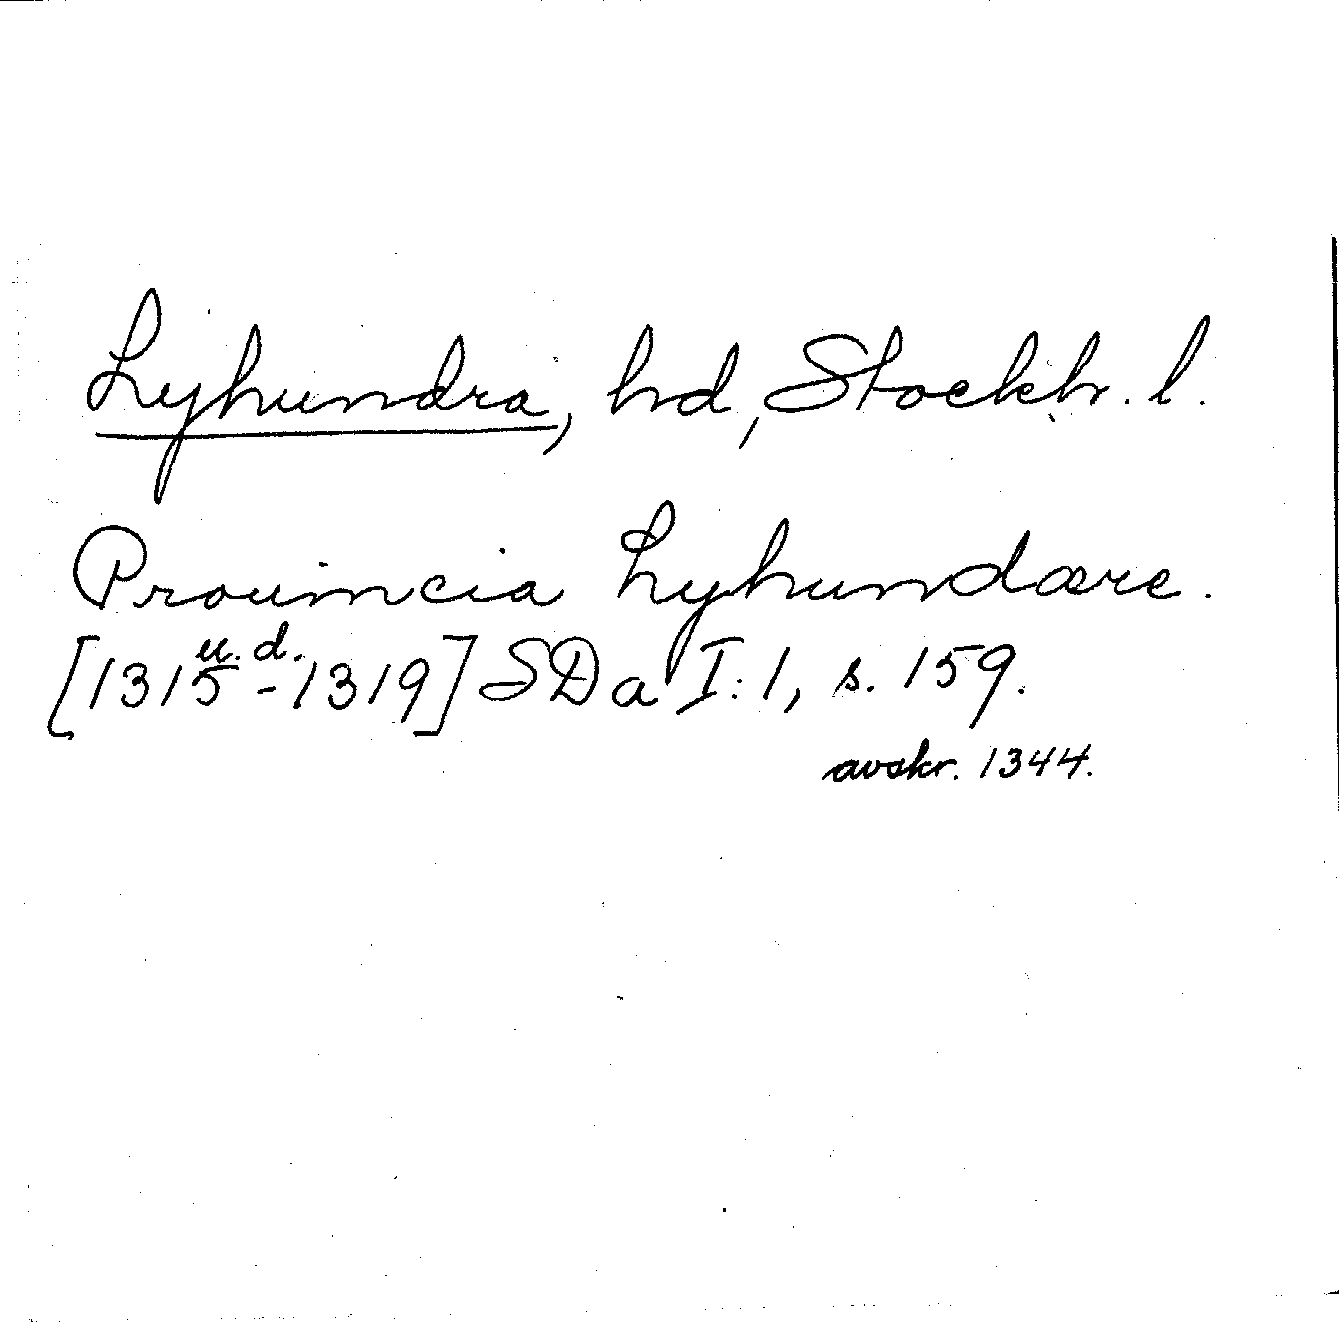 Lyhundra, hd, Stockh. l.
Prouincia Lyhundære.
u. d.
[1315-1319] SDa I:1, s. 159.
avskr. 1344.